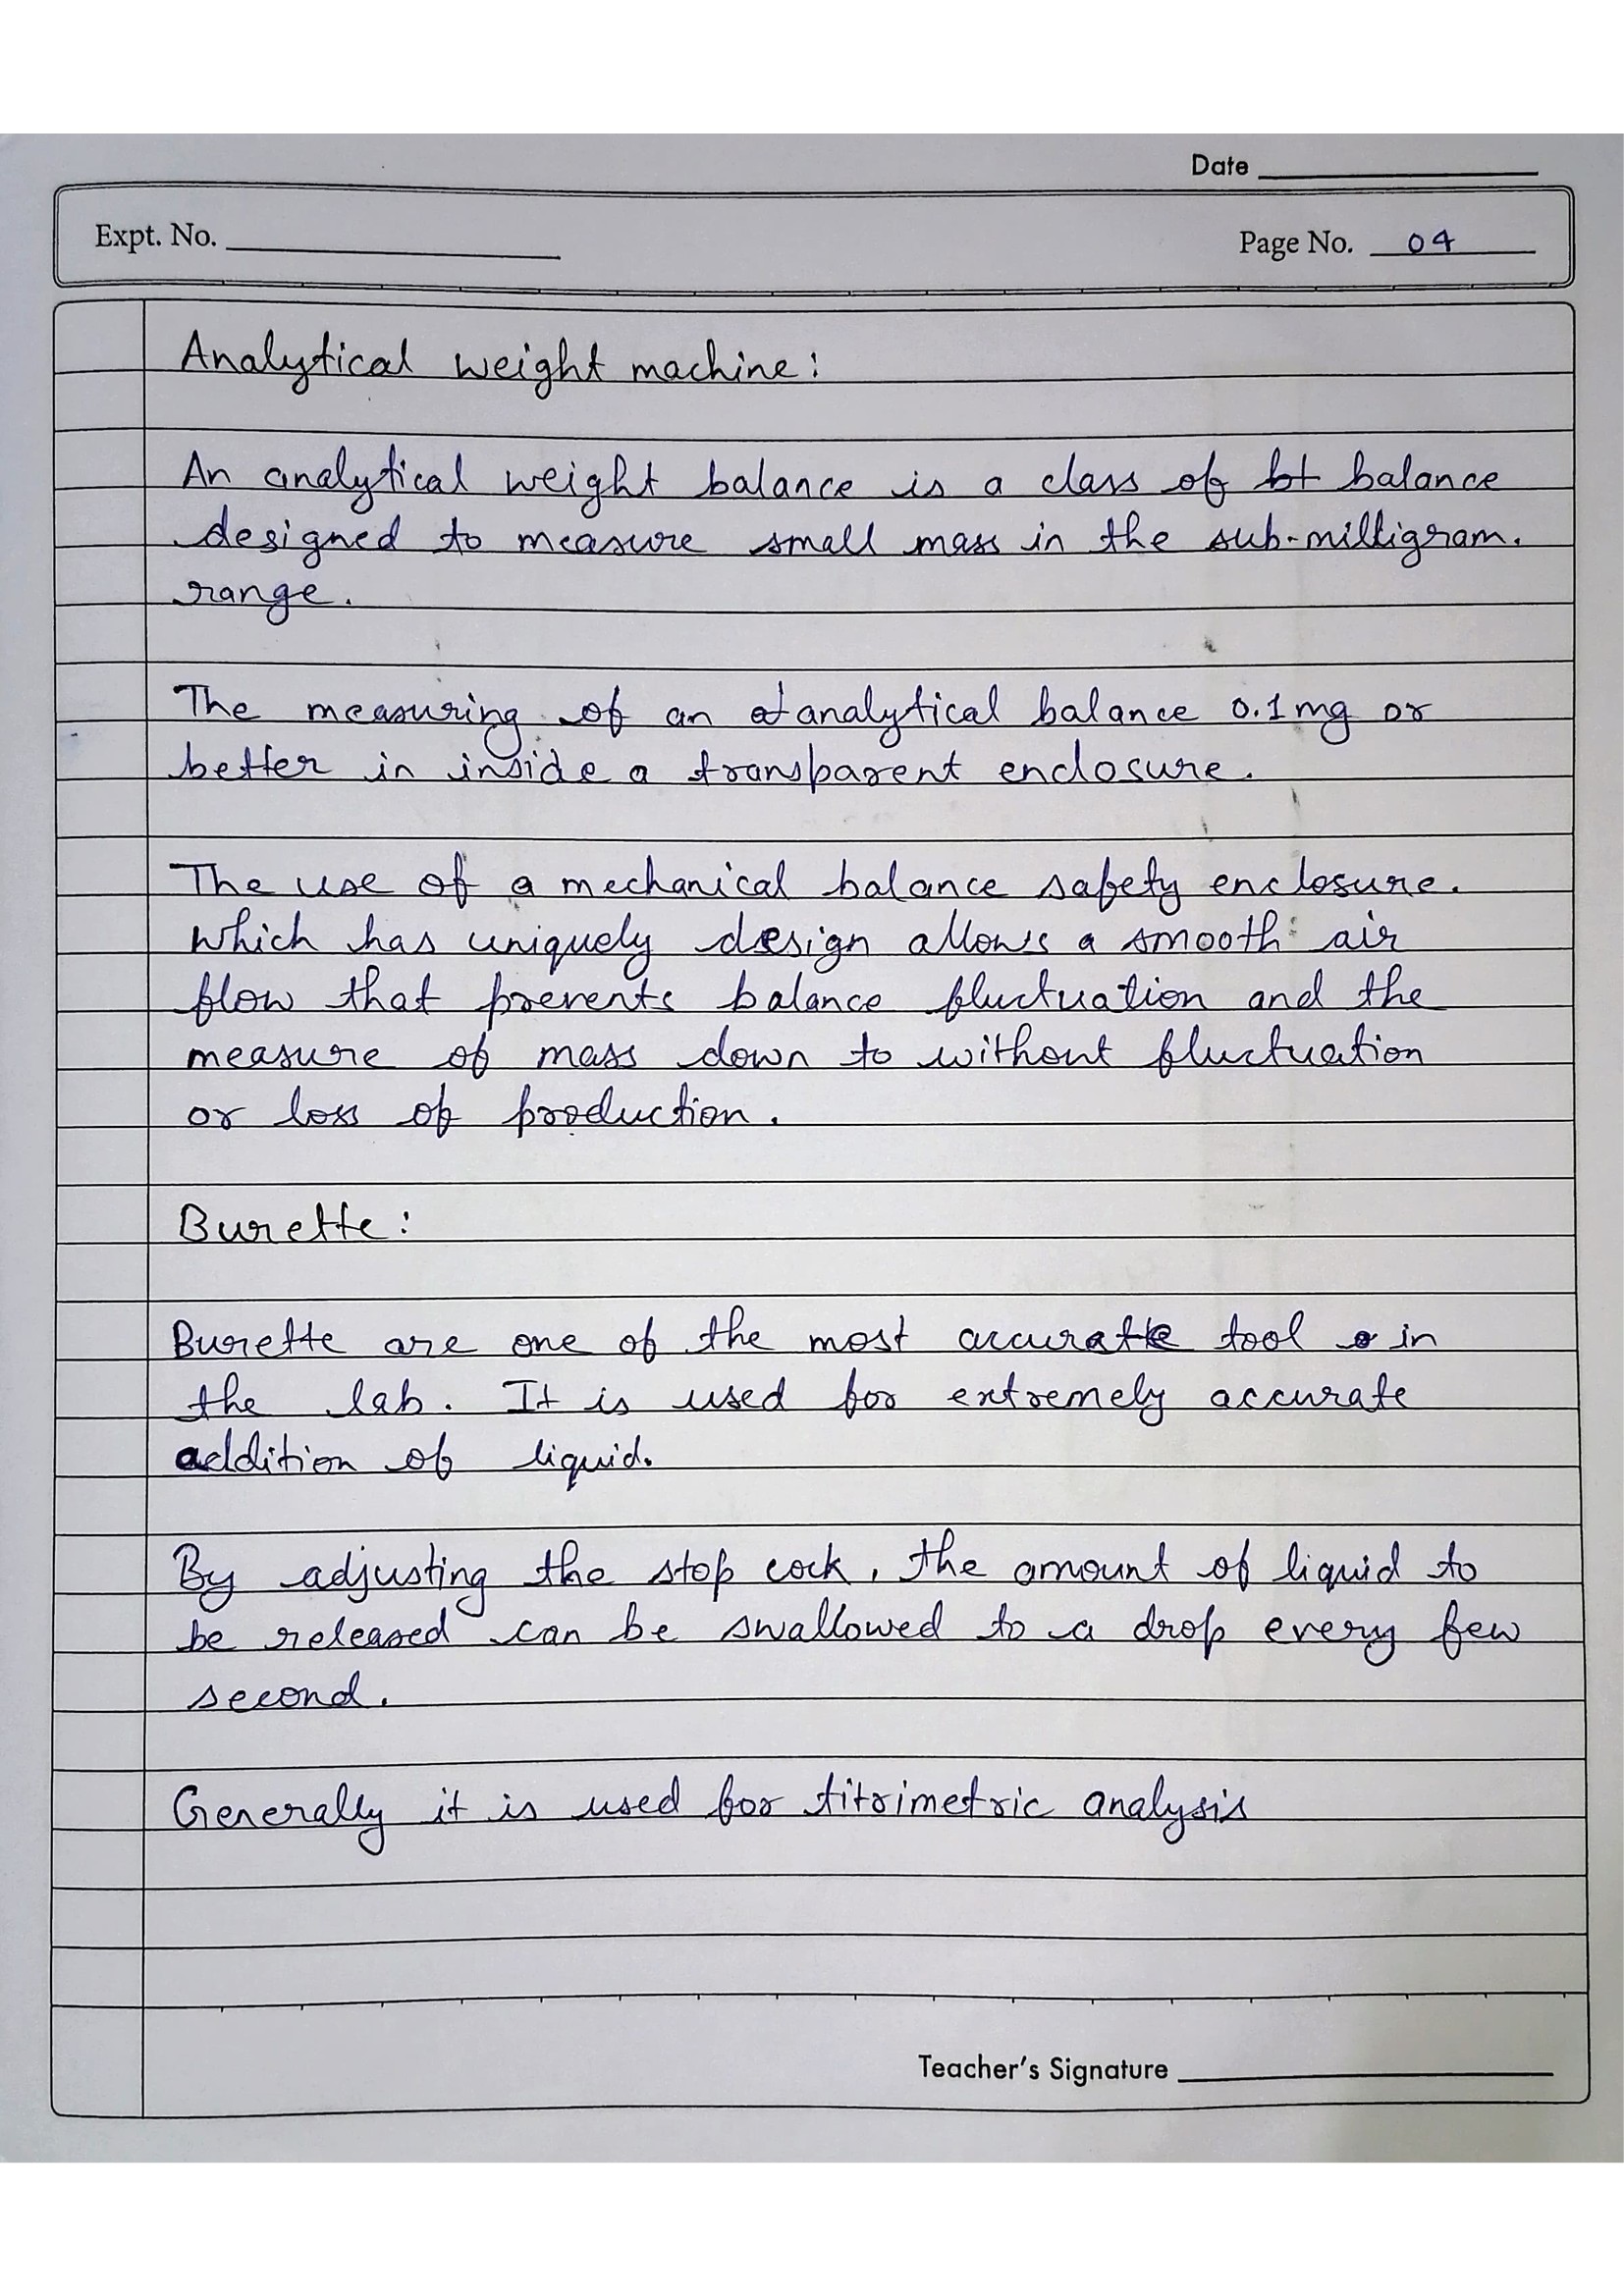 Date
Expt. No.
Page No. 04
Analytical weight machine:
An analytical weight balance is a class of bt balance
designed to measure small mass in the sub-milligram.
range.
The measuring of an analytical balance 0.1mg or
better in inside a transparent enclosure.
The use of a mechanical balance safety enclosure.
which has uniquely design allows a smooth air
flow that prevents balance fluctuation and the
measure of mass down to without fluctuation
or loss of production.
Burette:
Burette are one of the most accurate tool in
the lab. It is used for extremely accurate
addition of liquid.
By adjusting the stop cock, the amount of liquid to
be released can be swallowed to a drop every few
second.
Generally it is used for titrimetric analysis
Teacher's Signature